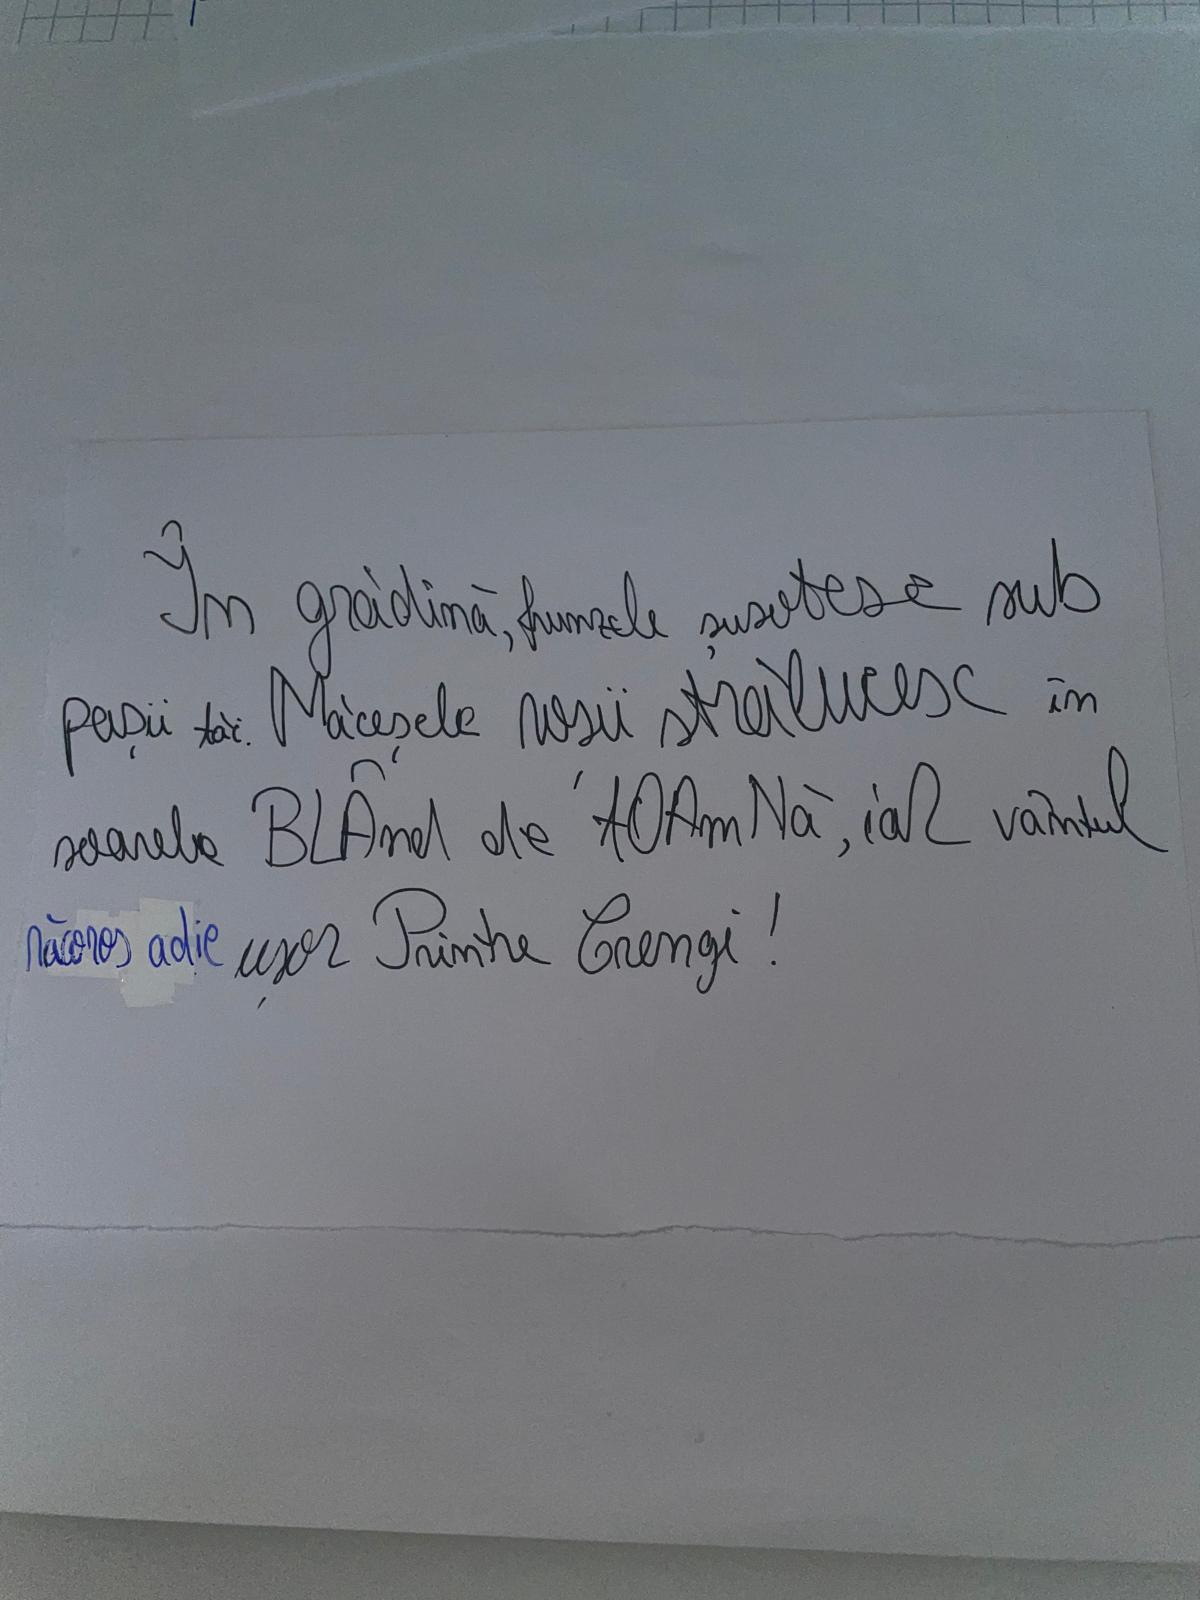 În grădină, frunzele șușotesc sub
pașii tăi. Măceșele roșii strălucesc în
soarele BLÂnd de tOAmNă, iaR vântul
răcoros adie ușor Printre Crengi!